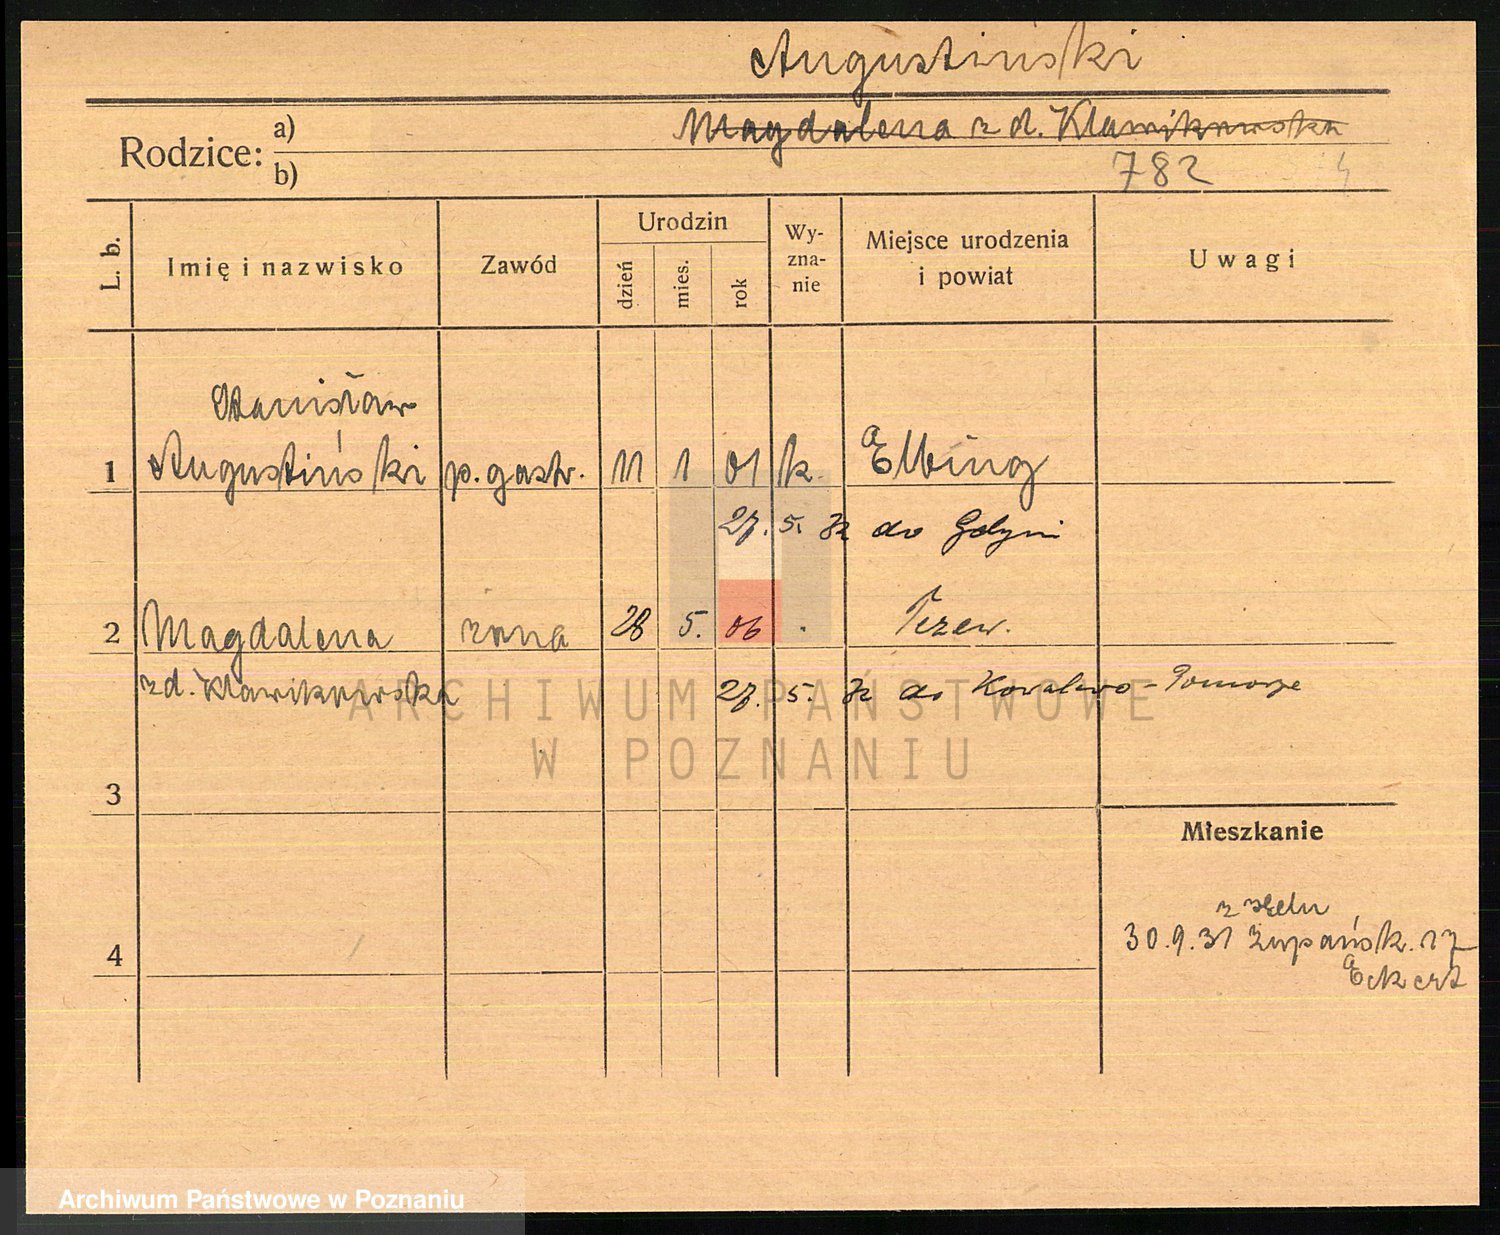 Augustiński
Rodzice: a)
Magdalena z d. Klawikowska
b)
782
L. b.
Imię i nazwisko
Zawód
Urodzin
dzień
mies.
rok
Wy-
zna-
nie
Miejsce urodzenia
i powiat
Uwagi
Stanisław
1 Augustiński p. gastr. 11 1 01 k. Elbing
27. 5. 32 do Gdyni
2 Magdalena żona 28 5. 06 Tczew.
z d. Klawikowska 27. 5. 32 do Kowalewo - Pomorze
ARCHIWUM PAŃSTWOWE
W POZNANIU
3
Mieszkanie
4
30.9.31 Żupańsk. 17
Eckert
Archiwum Państwowe w Poznaniu